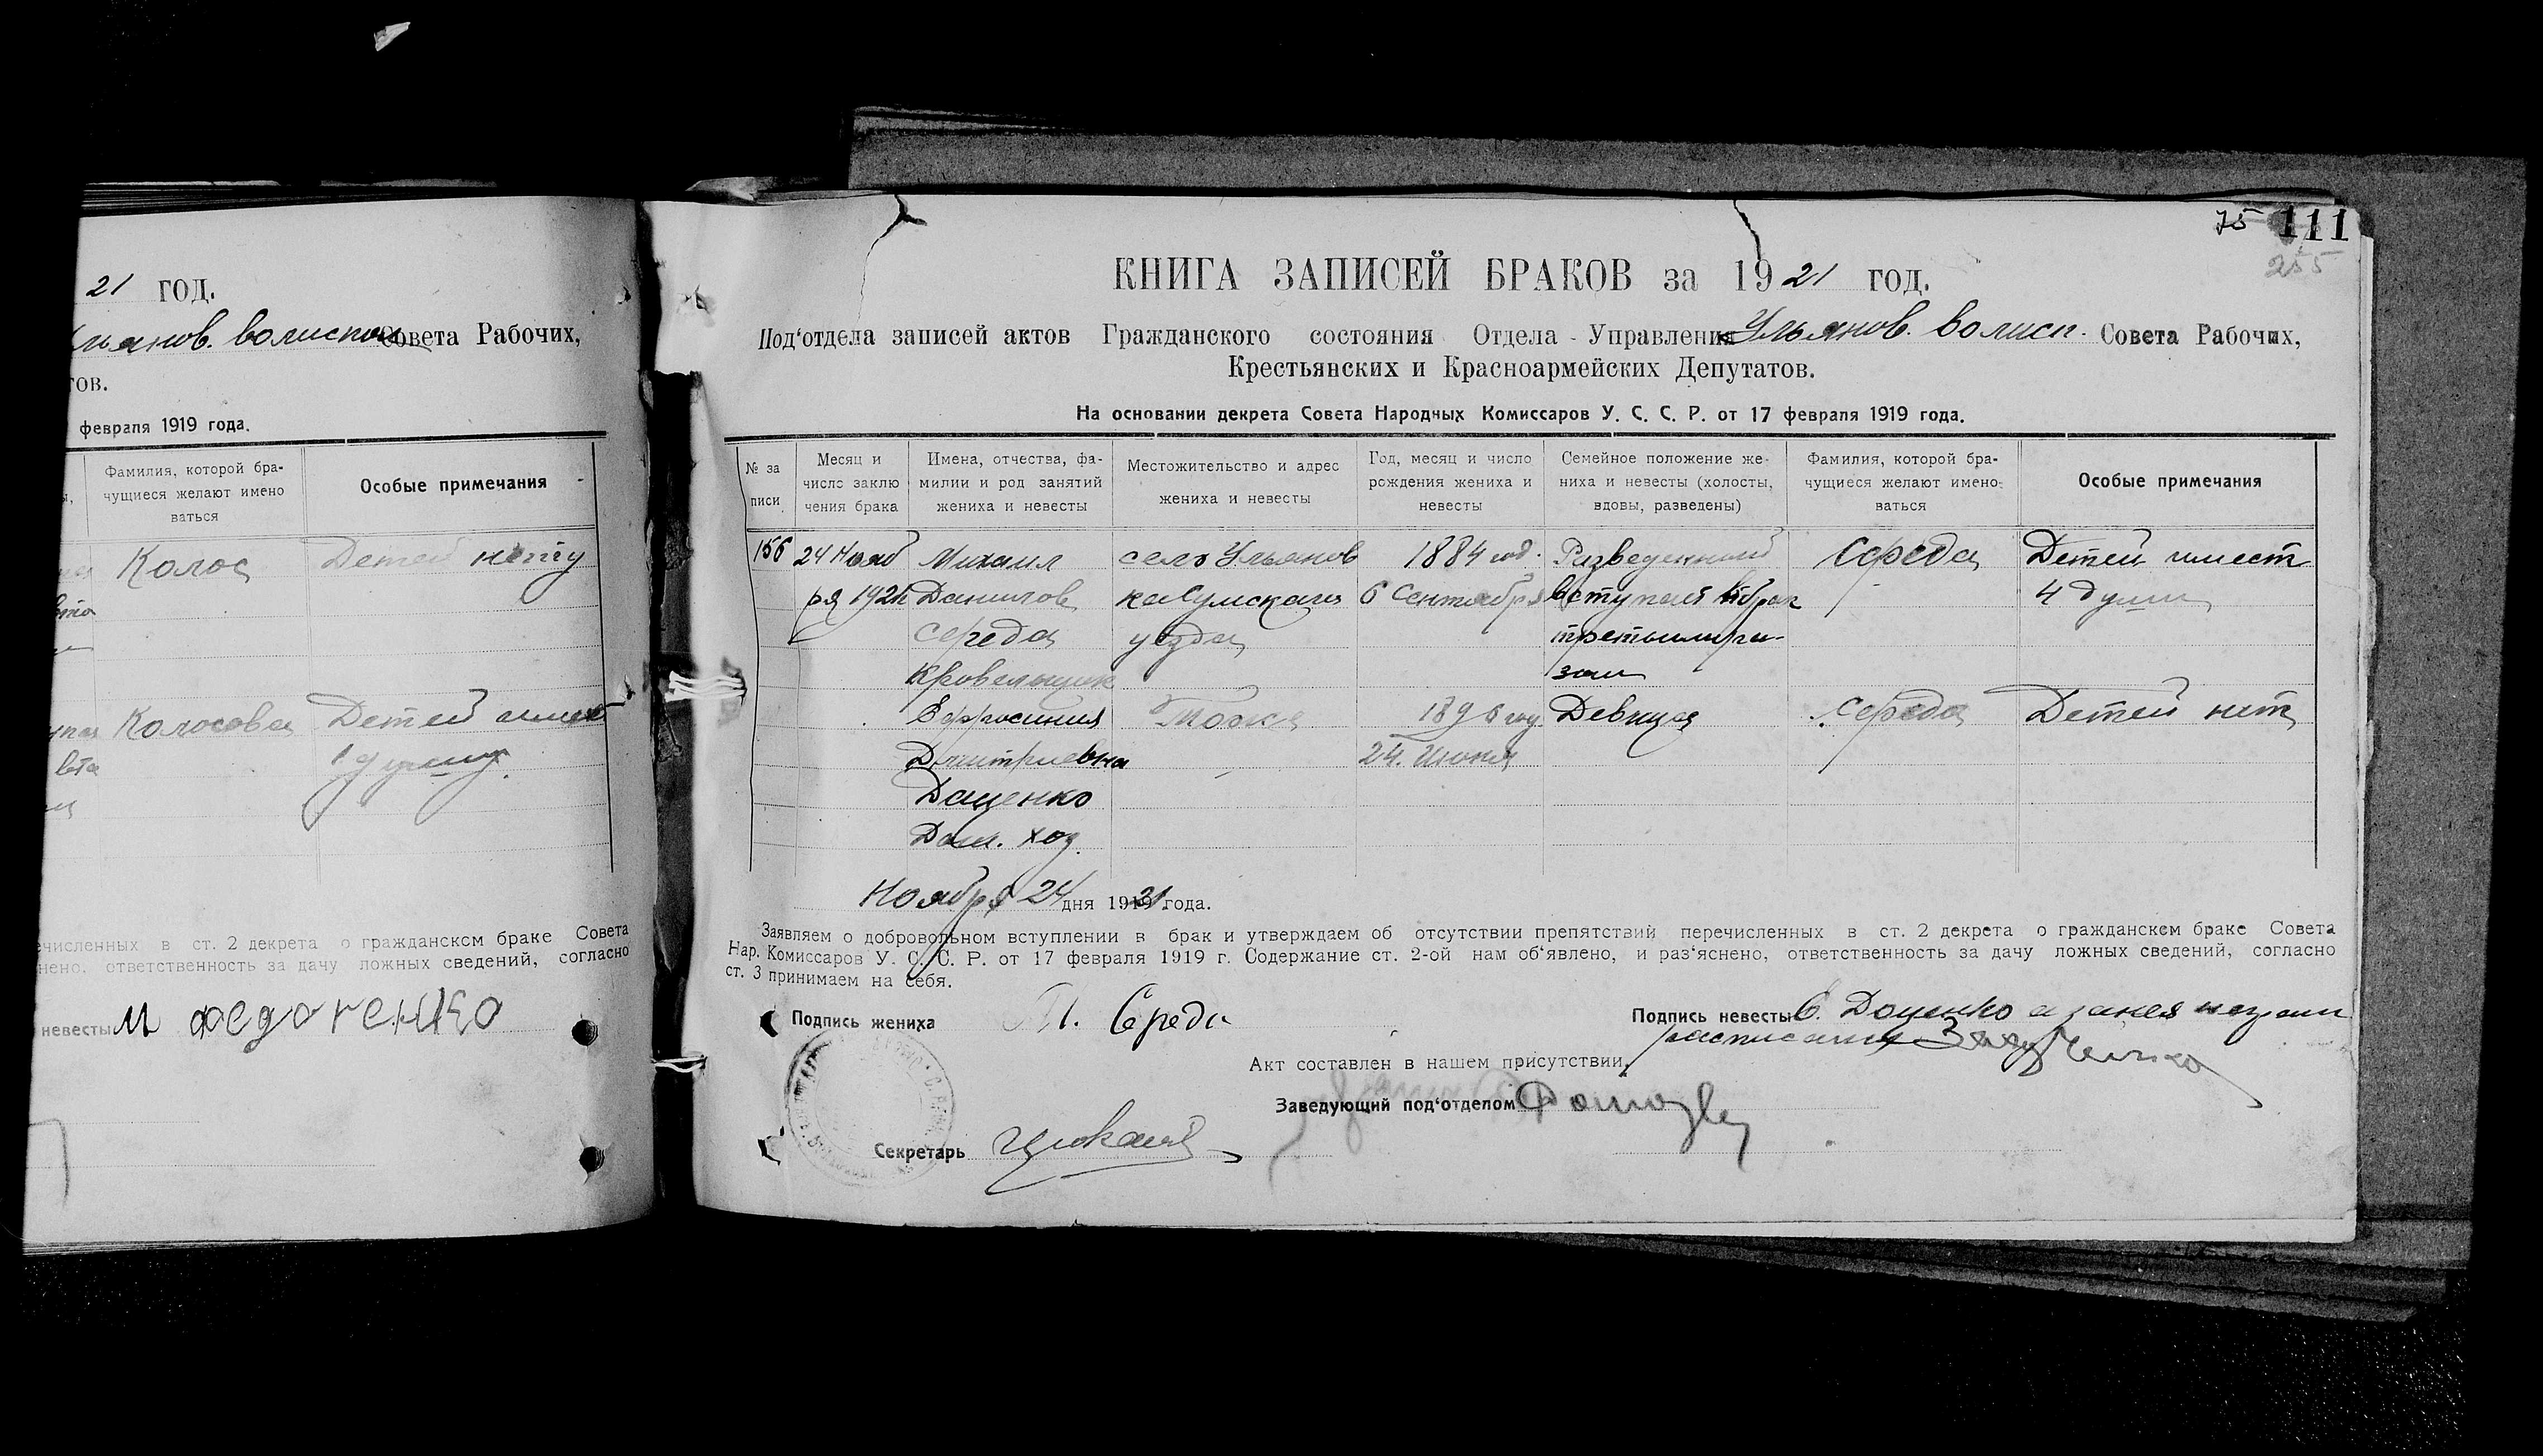 21 ГОД.
Совета Рабочих,
тов.
февраля 1919 года.
Фамилия, которой бра-
чущиеся желают имено
ваться
Особые примечания
Колос
Детей нету
Колосова
Детей имеет
1 душу
ечисленных в ст. 2 декрета о гражданском браке Совета
нено, ответственность за дачу ложных сведений, согласно
невесты М Федоренко
75 111
255
КНИГА ЗАПИСЕЙ БРАКОВ за 1921 год.
Под‘отдела записей актов Гражданского состояния Отдела - Управления Ульянов. волисп. Совета Рабочих,
Крестьянских и Красноармейских Депутатов.
На основании декрета Совета Народных Комиссаров У. С. С. Р. от 17 февраля 1919 года.
№ за
писи
Месяц и
число заклю
чения брака
Имена, отчества, фа-
милии и род занятий
жениха и невесты
Местожительство и адрес
жениха и невесты
Год, месяц и число
рождения жениха и
невесты
Семейное положение же-
ниха и невесты (холосты,
вдовы, разведены)
Фамилия, которой бра-
чущиеся желают имено-
ваться
Особые примечания
156
24 Нояб
ря 1921
Михаил
Данилов
Середа
Кровельщик
село Ульянов
ка Сумскаго
уезда
1884 год.
6 Сентября
Разведенный
вступает в брак
третьим ра-
зом
Середа
Детей имеет
4 души
Ефросиния
Дмитриевна
Даценко
Дом. хоз.
Тоже
1896 году
24. Июня
Девица
Середа
Детей нет
Ноября 24 дня 1921 года.
Заявляем о добровольном вступлении в брак и утверждаем об отсутствии препятствий перечисленных в ст. 2 декрета о гражданском браке Совета
Нар. Комиссаров У. С. С. Р. от 17 февраля 1919 г. Содержание ст. 2-ой нам об‘явлено, и раз‘яснено, ответственность за дачу ложных сведений, согласно
ст. 3 принимаем на себя.
Подпись жениха М. Середа
Подпись невесты Е. Даценко а за нея неграм
расписался
Акт составлен в нашем присутствии,
Заведующий под‘отделом
Секретарь